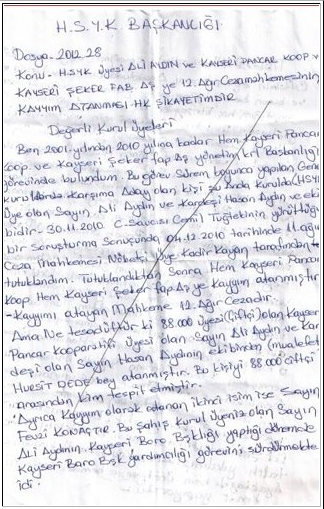 H.S.Y.K. BAŞKANLIĞI
Dosya-2012.28
Konu-HSYK ÜYESİ ALİ AYDIN VE KAYSERİ PANCAR KOOP V
KAYSERİ ŞEKER FAB. AŞ ye 12.Ağır Cezamahkemesinin
KAYYIM ATANMASI HK ŞİKAYETİMDİR
Değerli Kurul Üyeleri
Ben 2001.yılından 2010 yılına kadar Hem Kayseri Pancar
Koop. ve Kayseri Şeker Fap Aş yönetim krl Başkanlığı
görevinde bulundum. Bu görev sürem boyunca yapılan Gene
kurullarda karşıma Aday olan kişi şu Anda Kurulda (HSYK
üye olan Sayın, Ali Aydın ve Kardeşi Hasan Aydın ve eki
bidir- 30.11.2010 C.Savcısı Cemil Tuğtekinin yürüttüğü
bir Soruşturma Sonuşunda 04.12.2010 tarihinde 11.ağır
Ceza Mahkemesi Nöbetçi üye Kadir Kayan tarafından
tutuklandım. Tutuklandıktan Sonra Hem Kayseri Pancar
Koop Hem Kayseri Şeker fap Aş ye Kayyım atanmıştır
-Kayyımı atayan Mahkeme 12.Ağır Cezadır.
Ama Ne tesadüftür ki 88.000 üyesi(Çiftçi)olan Kayser
Pancar Kooparatifi üyesi olan Sayın Ali Aydın ve Kar
deşi olan Sayın Hasan Aydının ekibinden (muhalefet
HURŞİT DEDE bey atanmıştır. Bu kişiyi 88.000 Çiftçi
arasından kim tespit etmiştir.
Ayrıca Kayyım olarak atanan ikinci isim ise Sayın
Fevzi KONAÇTIR. Bu şahıs kurul üyeniz olan Sayın
Ali Aydının. Kayseri Boro. Bşklığı yaptığı dönemde
Kayseri Baro Bşk yardımcılığı görevini sürdürmekte
idi.